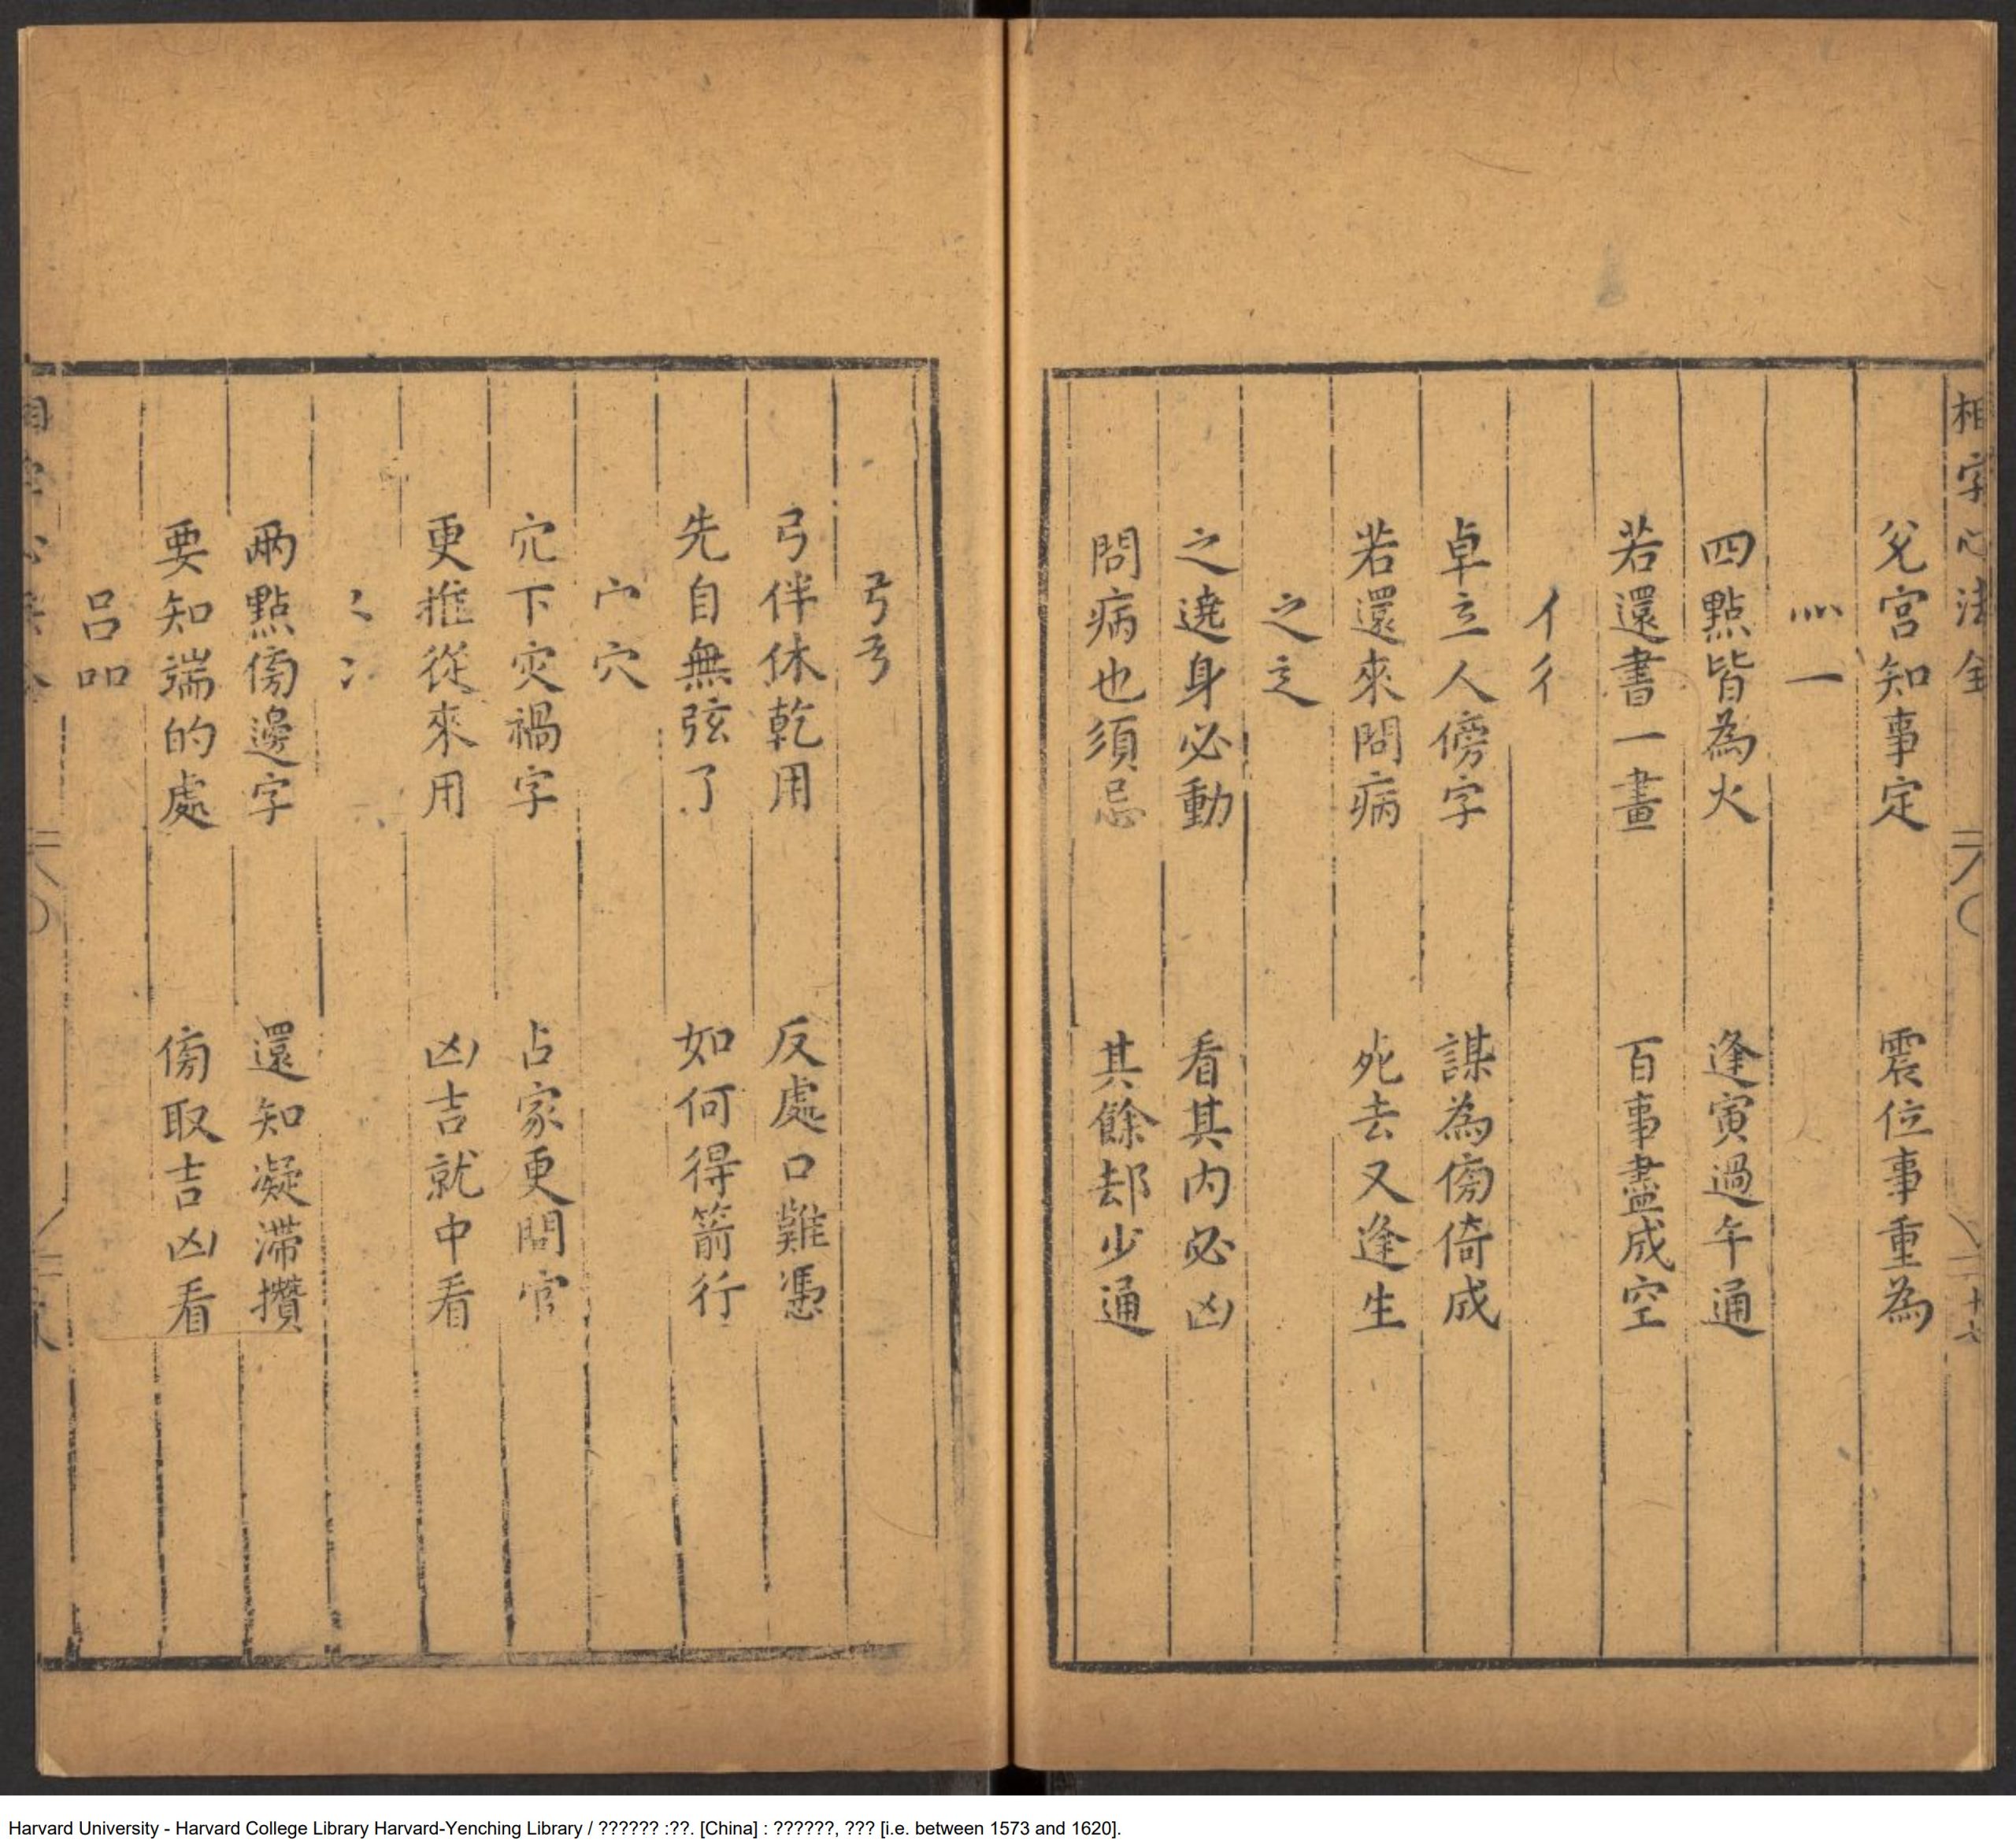 相字心法全
父宮知事定 震位事重為
灬 一
四點皆為火 逢寅過午通
若還書一畫 百事盡成空
亻 彳
卓立人傍字 謀為傍倚成
若還來問病 死去又逢生
之 辶
之遶身必動 看其內必凶
問病也須忌 其餘却少通
弓 弓
弓伴休乾用 反處口難憑
先自無弦了 如何得箭行
宀 穴
穴下灾禍字 占家更問官
更推從來用 凶吉就中看
冫
兩點傍邊字 還知凝滯攢
要知端的處 傍取吉凶看
呂 吅
Harvard University - Harvard College Library Harvard-Yenching Library / ?????? :??. [China] : ??????, ??? [i.e. between 1573 and 1620].